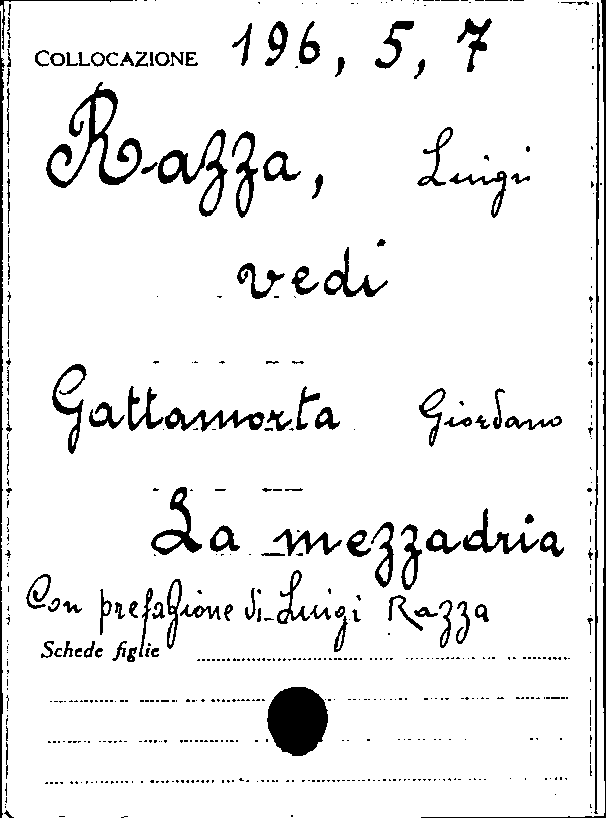 COLLOCAZIONE 196, 5, 7
Razza, Luigi
vedi
Gattamorta Giordano
La mezzadria
Con prefazione di Luigi Razza
Schede figlie